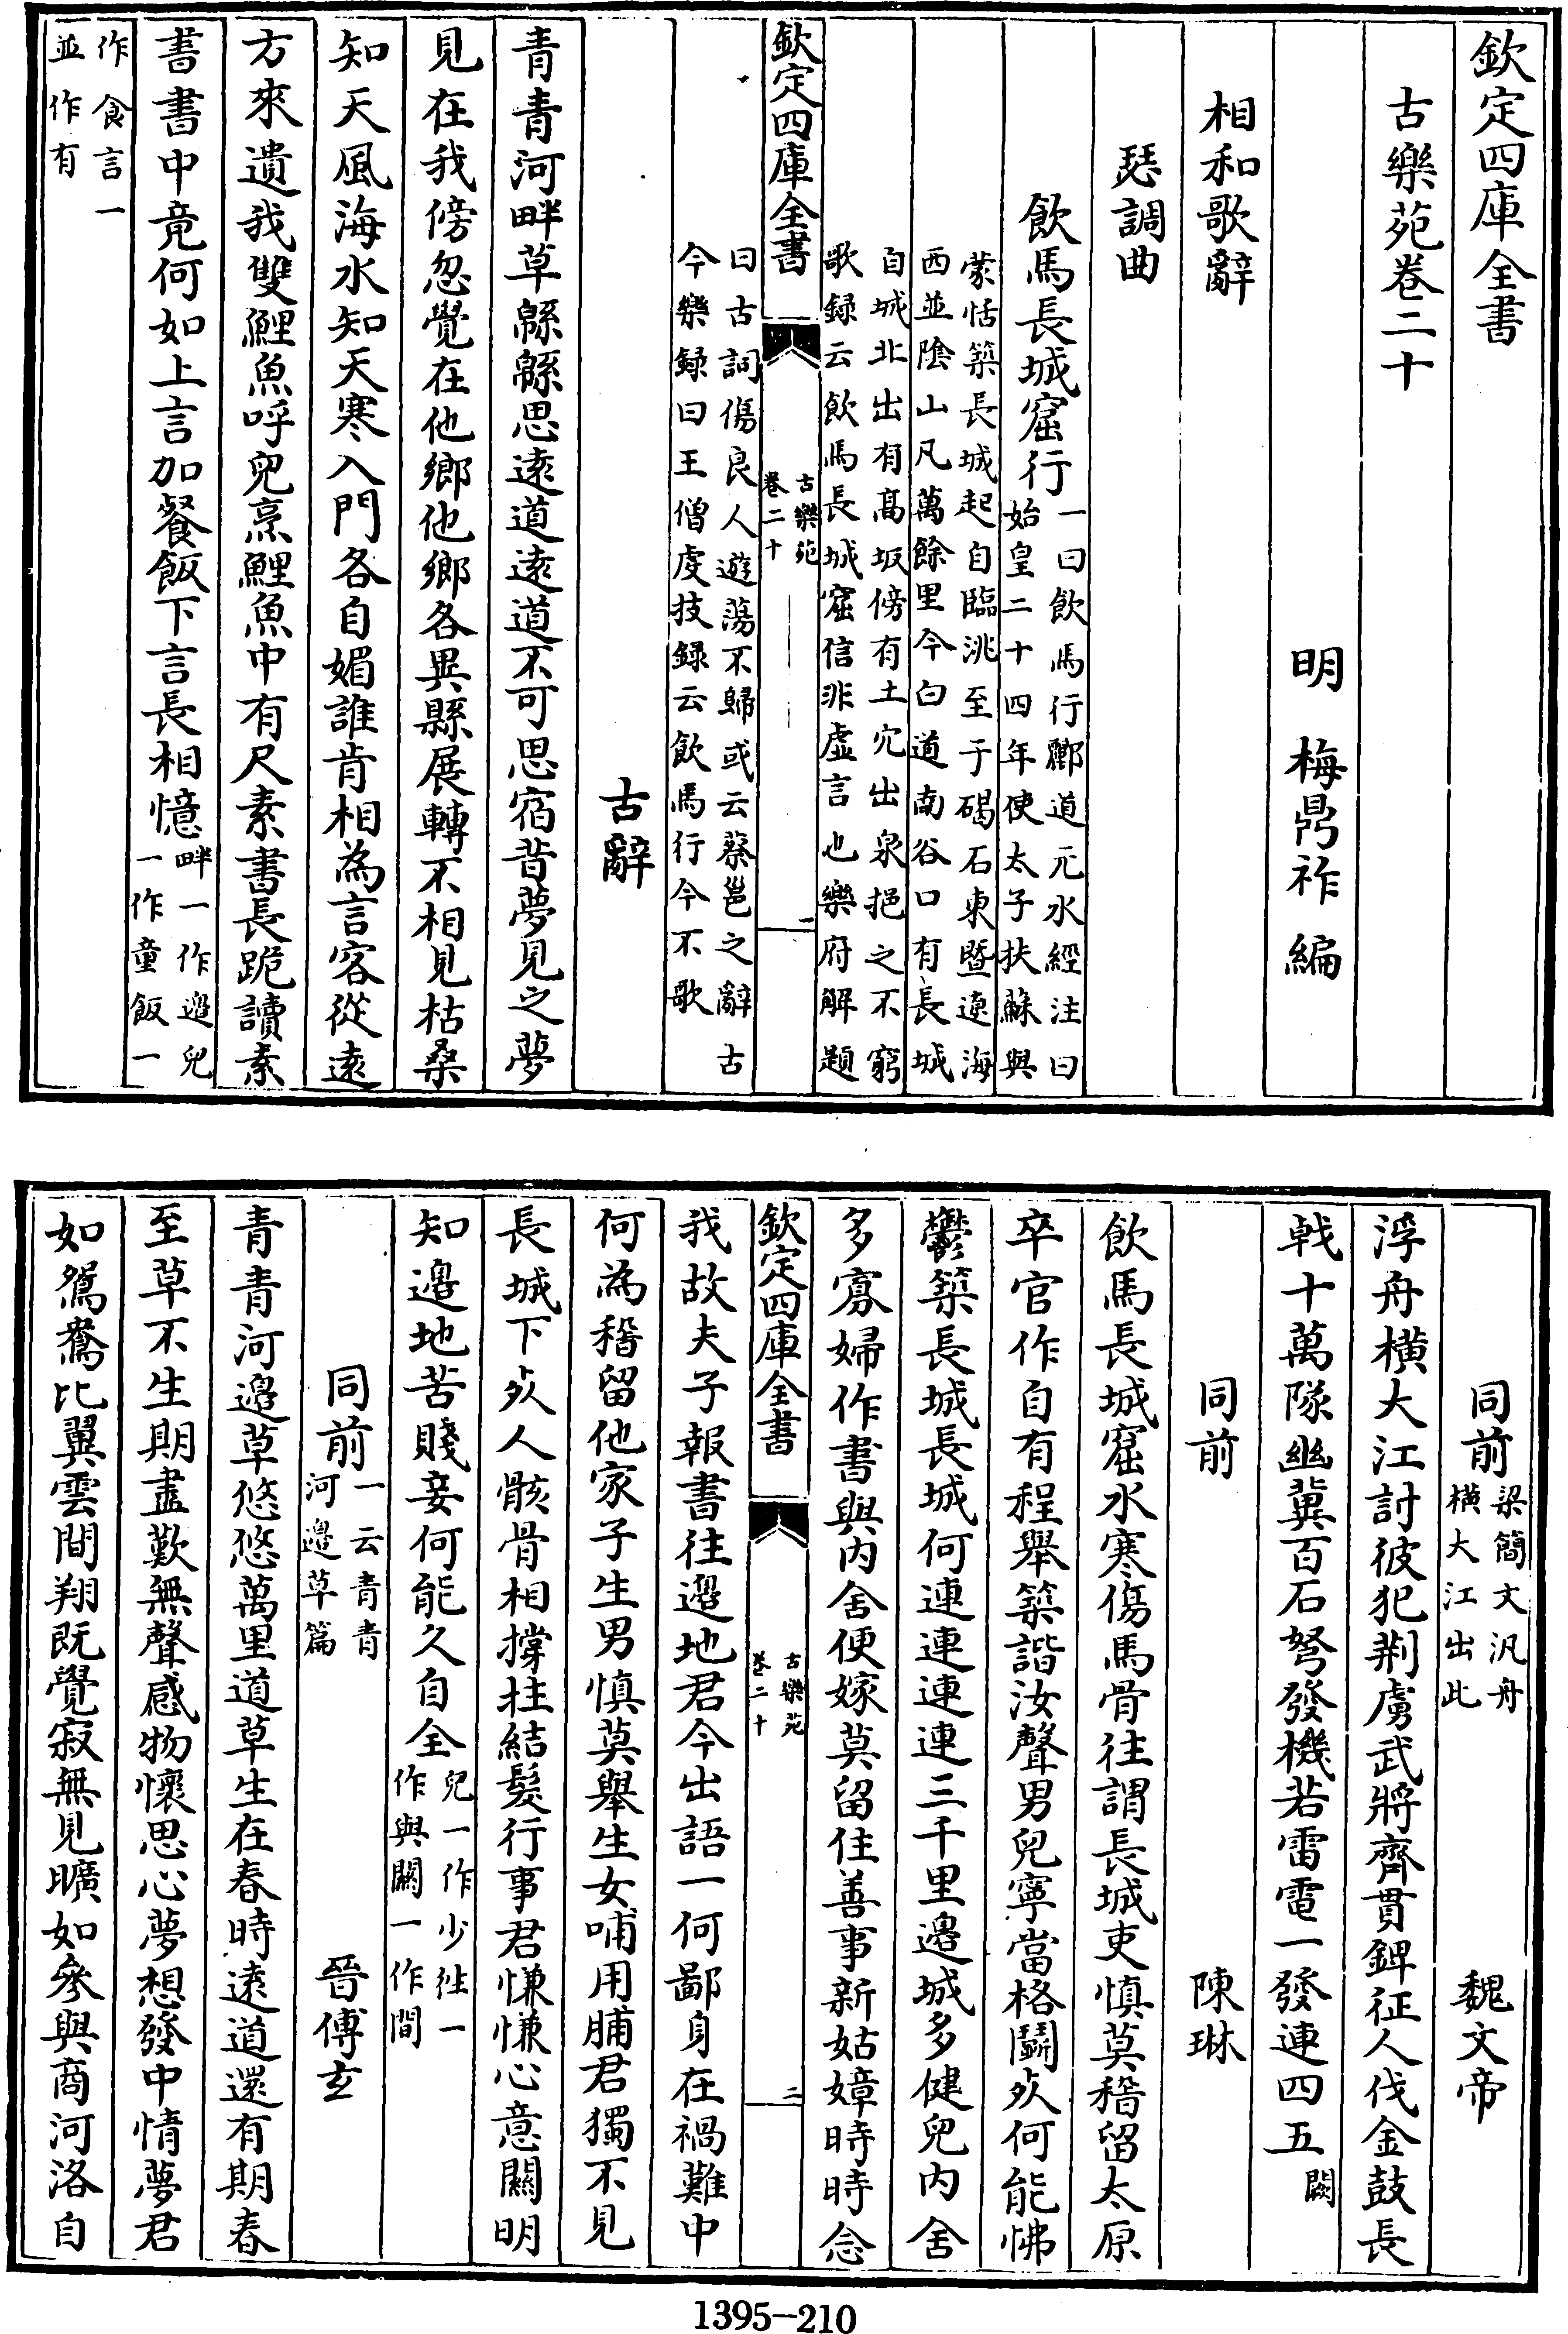 欽定四庫全書
古樂苑卷二十
明 梅鼎祚 編
相和歌辭
瑟調曲
飲馬長城窟行一曰飲馬行酈道元水經注曰
始皇二十四年使太子扶蘇與
蒙恬築長城起自臨洮至于碣石東暨遼海
西並陰山凡萬餘里今白道南谷口有長城
自城北出有高坂傍有土穴出泉挹之不窮
歌録云飲馬長城窟信非虛言也樂府解題
欽定四庫全書
古樂苑
卷二十
一
曰古詞傷良人遊蕩不歸或云蔡邕之辭古
今樂録曰王僧虔技録云飲馬行今不歌
古辭
青青河畔草緜緜思遠道遠道不可思宿昔夢見之夢
見在我傍忽覺在他鄉他鄉各異縣展轉不相見枯桑
知天風海水知天寒入門各自媚誰肯相為言客從遠
方來遺我雙鯉魚呼兒烹鯉魚中有尺素書長跪讀素
書書中竟何如上言加餐飯下言長相憶畔一作邊兒
一作童飯一
作食言一
並作有
同前梁簡文汎舟
橫大江出此
魏文帝
浮舟橫大江討彼犯荆虜武將齊貫錍征人伐金鼓長
戟十萬隊幽冀百石弩發機若雷電一發連四五闕
同前 陳琳
飲馬長城窟水寒傷馬骨往謂長城吏慎莫稽留太原
卒官作自有程舉築諧汝聲男兒寧當格鬭死何能怫
鬱築長城長城何連連連連三千里邊城多健兒內舍
多寡婦作書與內舍便嫁莫留住善事新姑嫜時時念
欽定四庫全書
古樂苑
卷二十
二
我故夫子報書往邊地君今出語一何鄙身在禍難中
何為稽留他家子生男慎莫舉生女哺用脯君獨不見
長城下死人骸骨相撐拄結髮行事君慊慊心意關明
知邊地苦賤妾何能久自全兒一作少往一
作與關一作間
同前一云青青
河邊草篇
晉傅玄
青青河邊草悠悠萬里道草生在春時遠道還有期春
至草不生期盡歎無聲感物懷思心夢想發中情夢君
如鴛鴦比翼雲間翔既覺寂無見曠如參與商河洛自
1395-210